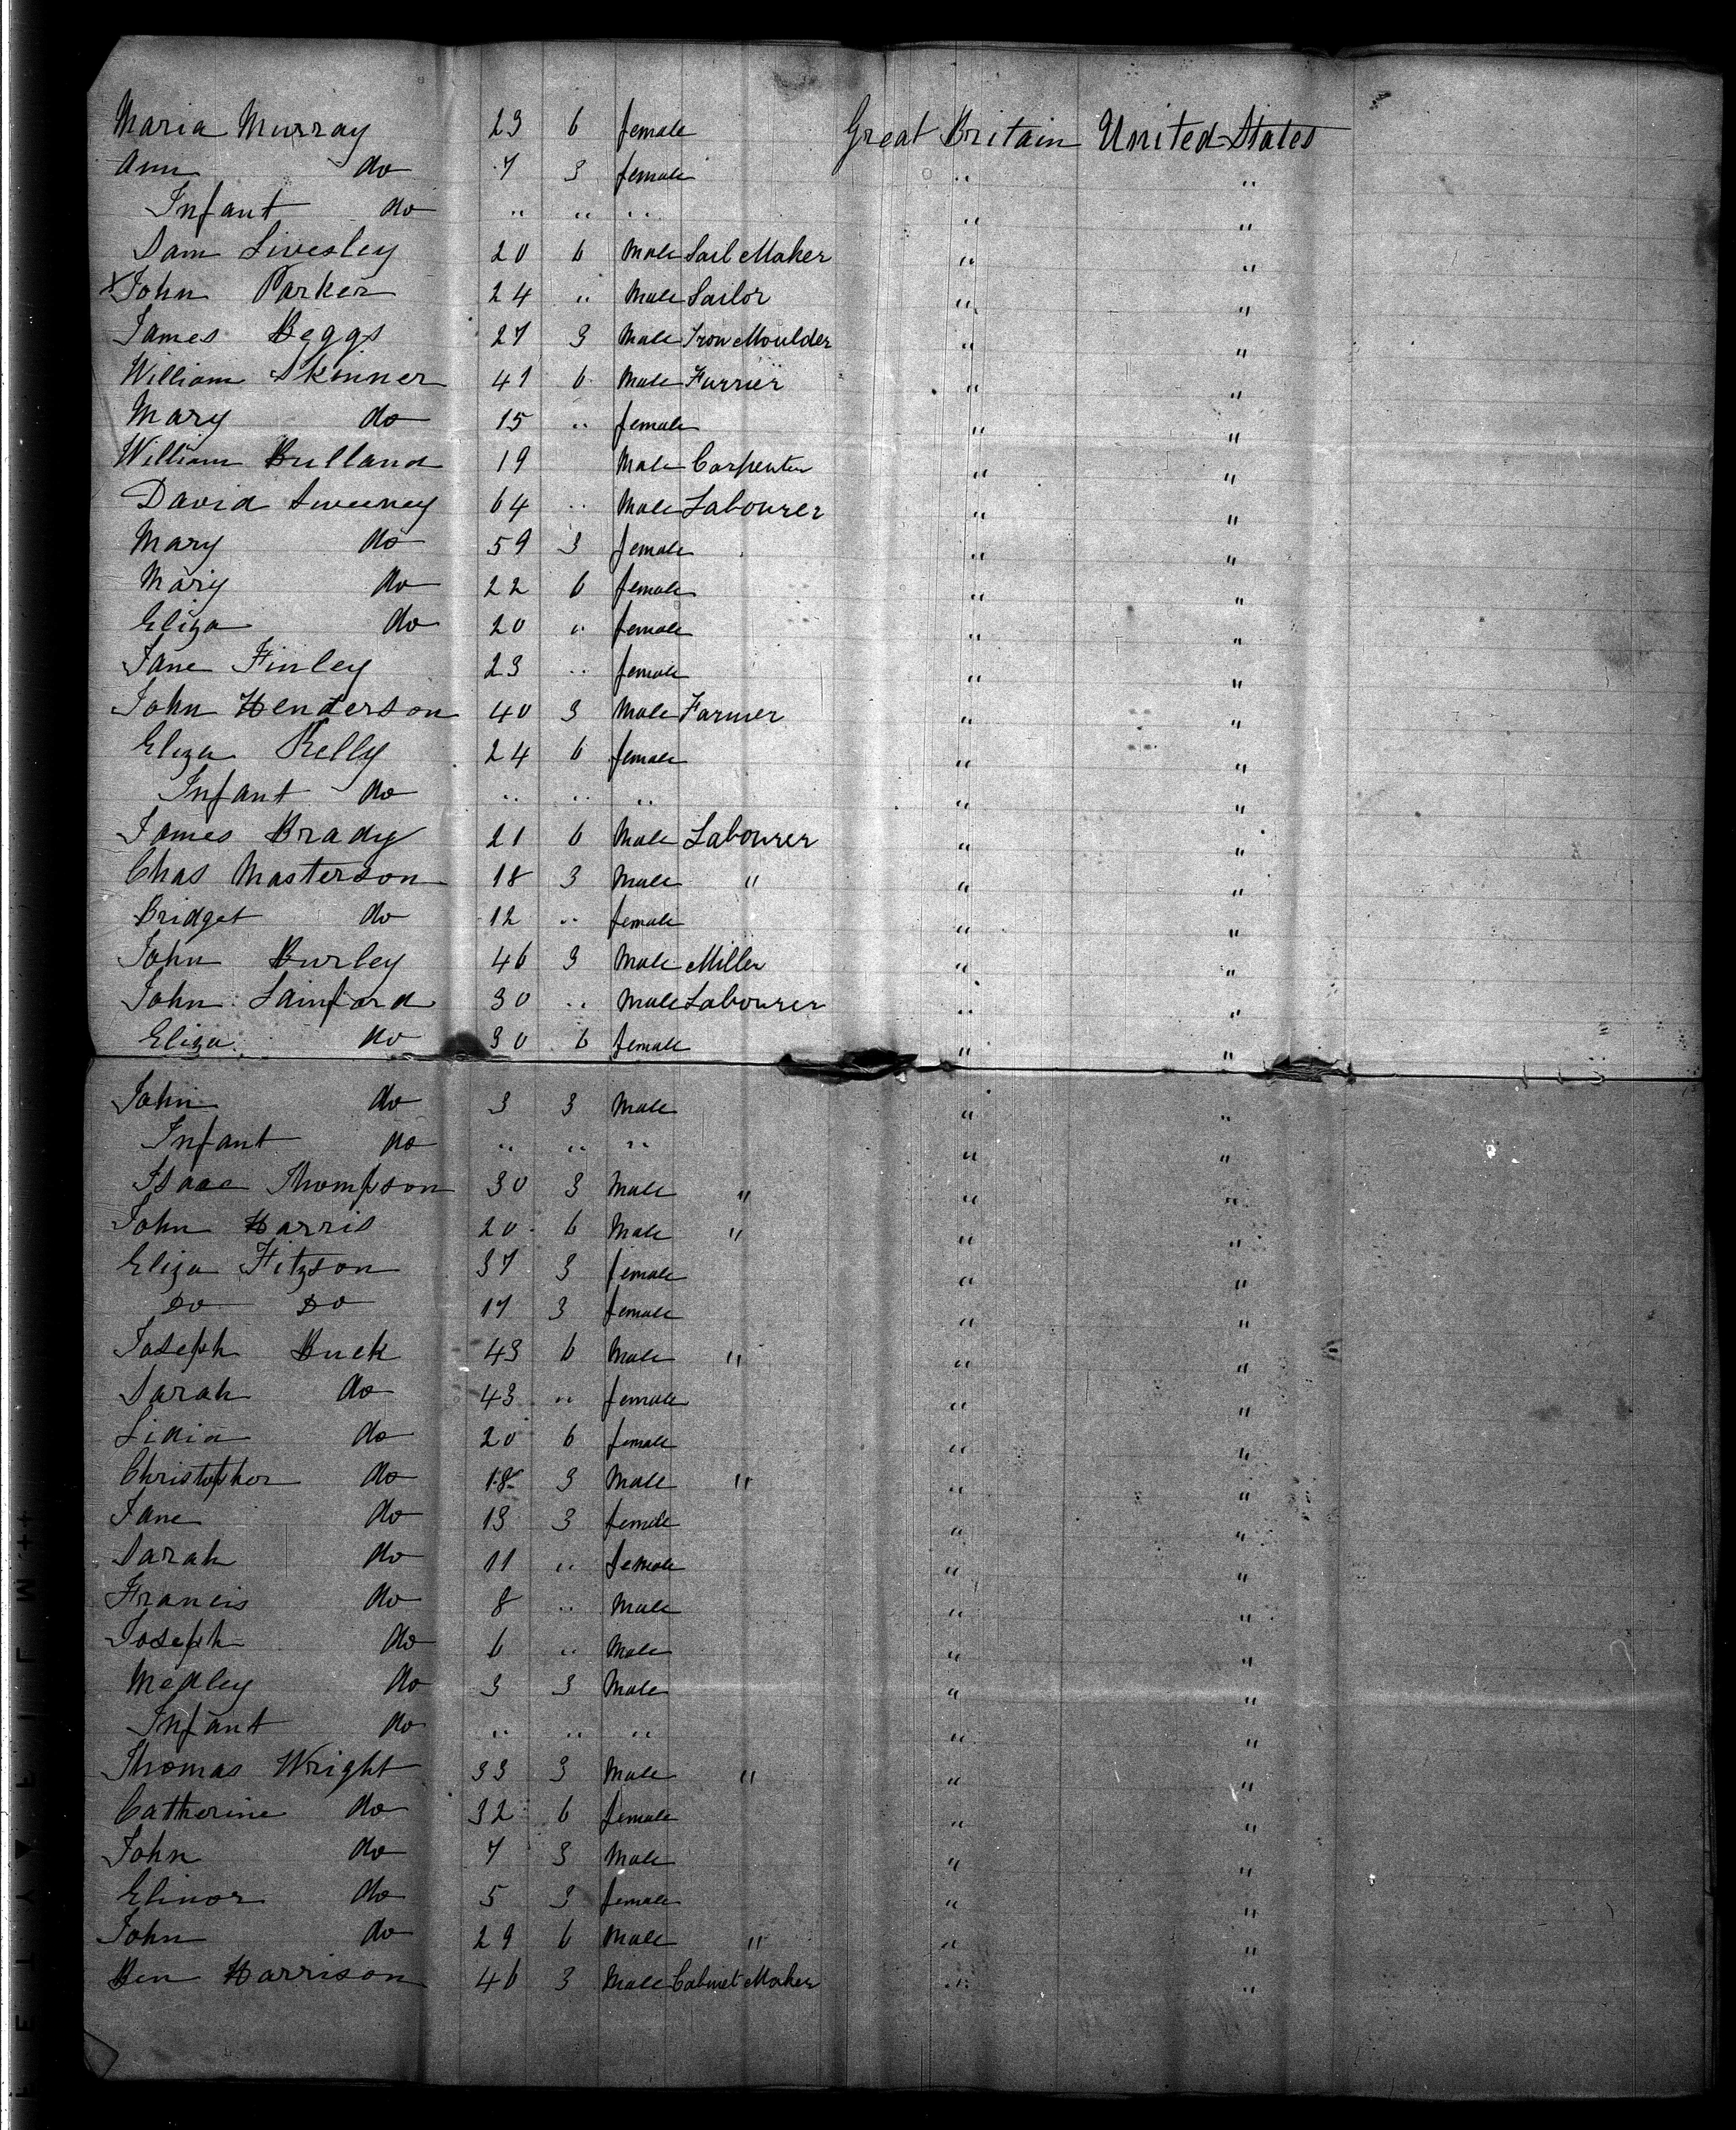 Maria Murray 23 6 female Great Britain United States
Ann do 7 3 female " "
Infant do " " " " "
Sam Livesley 20 6 Male Sail Maker " "
x John Parker 24 " Male Sailor " "
James Beggs 27 3 Male Iron Moulder " "
William Skinner 41 6 Male Furrier " "
Mary do 15 " female " "
William Bulland 19 Male Carpenter " "
David Sweeney 64 " Male Labourer " "
Mary do 59 3 female " "
Mary do 22 6 female " "
Eliza do 20 " female " "
Jane Finley 23 " female " "
John Henderson 40 3 Male Farmer " "
Eliza Kelly 24 6 female " "
Infant do " " " " "
James Brady 21 6 Male Labourer " "
Chas Masterson 18 3 Male " " "
Bridget do 12 " female " "
John Burley 46 3 Male Miller " "
John Sainford 30 " Male Labourer " "
Eliza do 30 6 female " "
John do 3 3 Male " "
Infant do " " " " "
Isaac Thompson 30 3 Male " " "
John Harris 20 6 Male " " "
Eliza Fitzson 37 3 female " "
Do Do 17 3 female " "
Joseph Buck 43 6 Male " " "
Sarah do 43 " female " "
Lidia do 20 6 female " "
Christopher do 18 3 Male " " "
Jane do 13 3 female " "
Sarah do 11 " female " "
Francis do 8 " Male " "
Joseph do 6 " Male " "
Medley do 3 3 Male " "
Infant do " " " " "
Thomas Wright 33 3 Male " " "
Catherine do 32 6 female " "
John do 7 3 Male " "
Elinor do 5 3 female " "
John do 29 6 Male " " "
Ben Harrison 46 3 Male Cabinet Maker " "